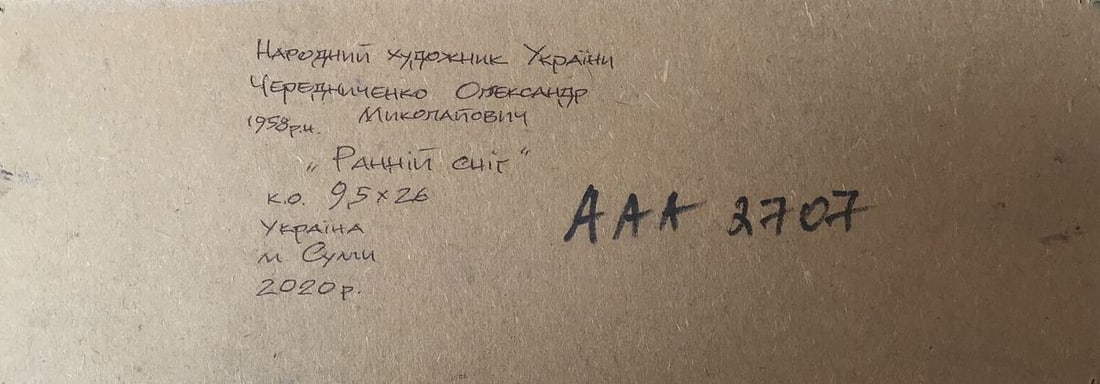 Народний художник України
Чередниченко Олександр
Миколайович
1958р.н.
„Ранній сніг“
к.о. 9,5×26
ААА 2707
Україна
м. Суми
2020р.